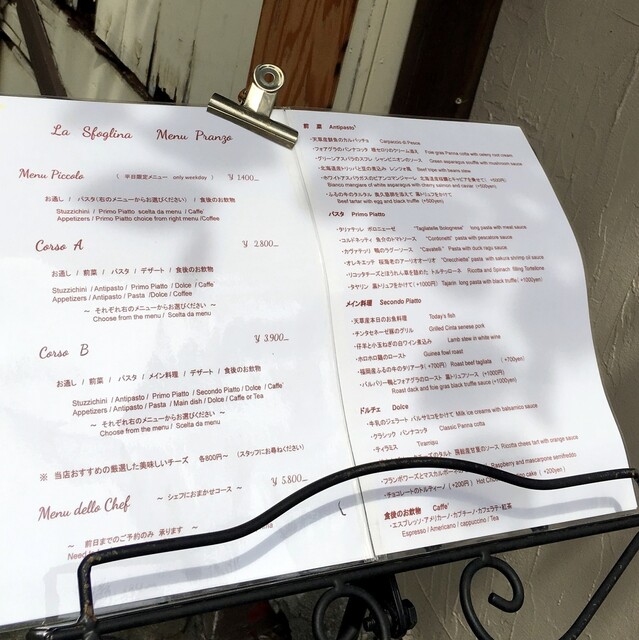 La Sfoglina Menu Pranzo
Menu Piccolo ( 平日限定メニュー only weekday ) ¥ 1400
お通し / パスタ(右のメニューからお選びください) / 食後のお飲物
Stuzzichini / Primo Piatto scelta da menu / Caffe'
Appetizers / Primo Piatto choice from right menu /Coffee
Corso A ¥ 2800
お通し / 前菜 / パスタ / デザート / 食後のお飲物
Stuzzichini / Antipasto / Primo Piatto / Dolce / Caffe'
Appetizers / Antipasto / Pasta / Dolce / Coffee
~ それぞれ右のメニューからお選びください ~
Choose from the menu / Scelta da menu
Corso B ¥ 3900
お通し / 前菜 / パスタ / メイン料理 / デザート / 食後のお飲物
Stuzzichini / Antipasto / Primo Piatto / Secondo Piatto / Dolce / Caffe'
Appetizers / Antipasto / Pasta / Main dish / Dolce / Caffe or Tea
~ それぞれ右のメニューからお選びください ~
Choose from the menu / Scelta da menu
※ 当店おすすめの厳選した美味しいチーズ 各800円~ (スタッフにお尋ねください)
Menu dello Chef ~ シェフにおまかせコース ~ ¥ 5800
~ 前日までのご予約のみ 承ります ~
Need
前 菜 Antipasto
・天草産鮮魚のカルパッチョ Carpaccio di Pesce
・フォアグラのパンナコッタ 根セロリのクリーム添え Foie gras Panna cotta with celery root cream
・グリーンアスパラのスフレ シャンピニオンのソース Green asparagus souffle with mushroom sauce
・北海道産トリッパと豆の煮込み レンツォ風 Beef tripe with beans stew
・ホワイトアスパラガスのビアンコマンジャーレ
Bianco mangiare of white asparagus with cherry salmon and caviar (+500yen)
Beef tartar with egg and black truffle (+600yen)
パスタ Primo Piatto
・タリアテッレ ボロニェーゼ "Tagliatelle Bolognese" long pasta with meat sauce
・コルドネッティ 魚介のトマトソース "Cordonetti" pasta with pescatore sauce
・カヴァテッリ 鴨のラグーソース "Cavatelli" Pasta with duck ragu sauce
・オレキエッテ 桜海老のアーリオオーリオ "Orecchiette" pasta with sakura shrimp oil sauce
・リコッタチーズとほうれん草を詰めた トルテッローネ Ricotta and Spinach filling Tortellone
・タヤリン 黒トリュフをかけて(+1000円) Tajarin long pasta with black truffle (+1000yen)
メイン料理 Secondo Piatto
・天草産本日のお魚料理 Today's fish
・チンタセネーゼ豚のグリル Grilled Cinta senese pork
・仔羊と小玉ねぎの白ワイン煮込み Lamb stew in white wine
・ホロホロ鶏のロースト Guinea fowl roast
・福岡産ふるの牛のタリアータ(+700円) Roast beef tagliata (+700yen)
・バルバリー鴨とフォアグラのロースト 黒トリュフソース(+1800円)
Roast duck and foie gras black truffle sauce (+1800yen)
ドルチェ Dolce
・牛乳のジェラート バルサミコをかけて Milk ice creams with balsamico sauce
・クラシック パンナコッタ Classic Panna cotta
・ティラミス Tiramisu
Ricotta chees tart with orange sauce
・フランボワーズとマスカルポーネ Raspberry and mascarpone semifreddo
・チョコレートのトルティーノ (+200円)
食後のお飲物 Caffe'
・エスプレッソ・アメリカーノ・カプチーノ・カフェラテ・紅茶
Espresso / Americano / cappuccino / Tea